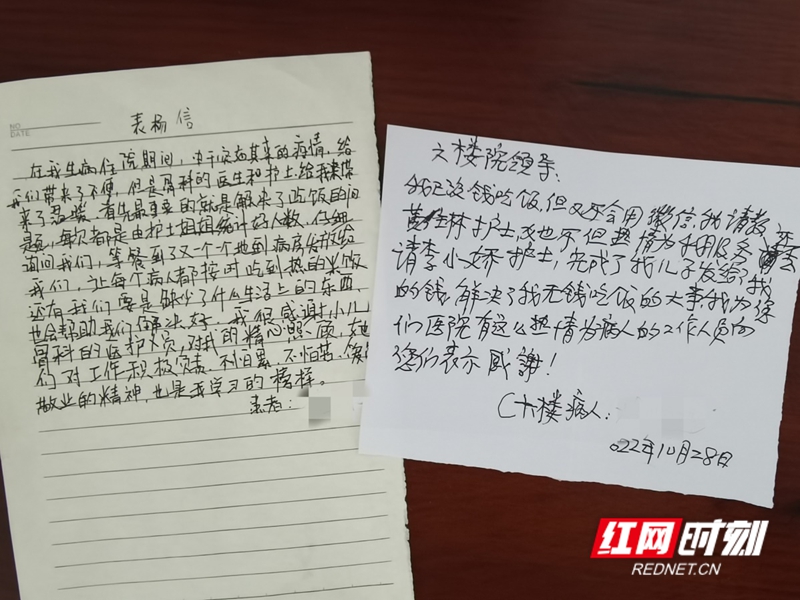 NO
DATE
表扬信
在我生病住院期间，由于突如其来的疫情，给
我们带来了不便，但是骨科的医生和护士给我们带
来了温暖。首先最主要的就是解决了吃饭的问
题，每次都是由护士姐姐统计好人数，仔细
询问我们，等餐到了又一个个地到病房发放给
我们，让每个病人都按时吃到热的米饭
还有我们要是缺少了什么生活上的东西
也会帮助我们解决好。我很感谢小儿
骨科的医护人员，对我的精心照顾，她
们对工作积极负责，不怕累，不怕苦，
敬业的精神，也是我学习的榜样。
患者：
六楼院领导：
我已没钱吃饭，但又不会用微信，我请教
黄桂林护士，她不但热情为我服务，还
请李小娇护士，完成了我儿子发给我
的钱，解决了我无钱吃饭的大事，我为
们医院有这么热情为病人的工作人员向
您们表示感謝！
（六楼病人：
2022年10月28日
红网时刻
REDNET.CN